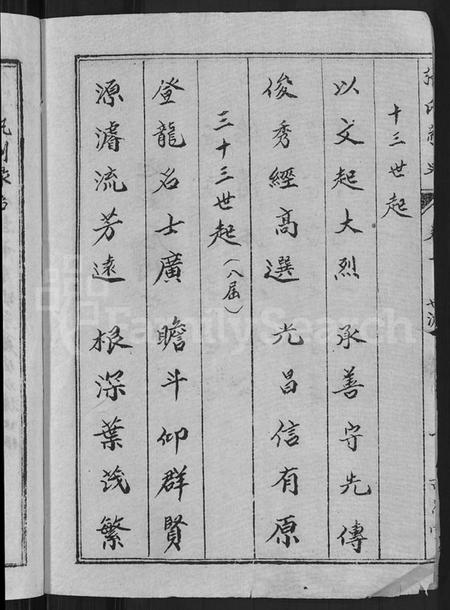 十三世起
以文起大烈 承善守先傳
俊秀經高選 光昌信有原
三十三世起(八届)
登龍名士廣 瞻斗仰群賢
源濬流芳遠 根深葉茂繁
FamilySearch